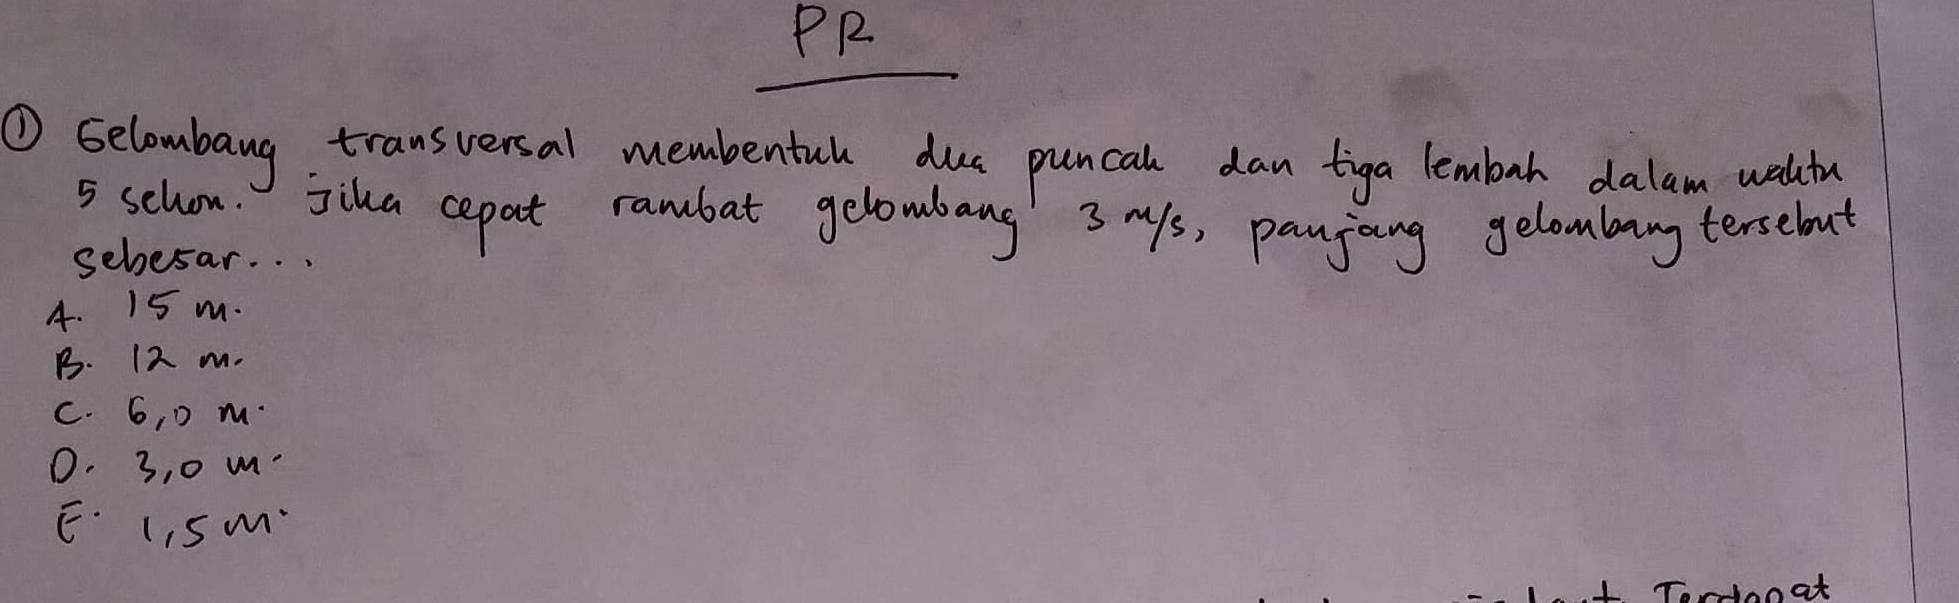 PR
① Gelombang transversal membentuk dua puncak dan tiga lembah dalam waktu
5 sekon. Jika cepat rambat gelombang 3 m/s, panjang gelombang tersebut
sebesar...
A. 15 m.
B. 12 m.
C. 6,0 m.
D. 3,0 m.
E. 1,5 m.
Terdapat